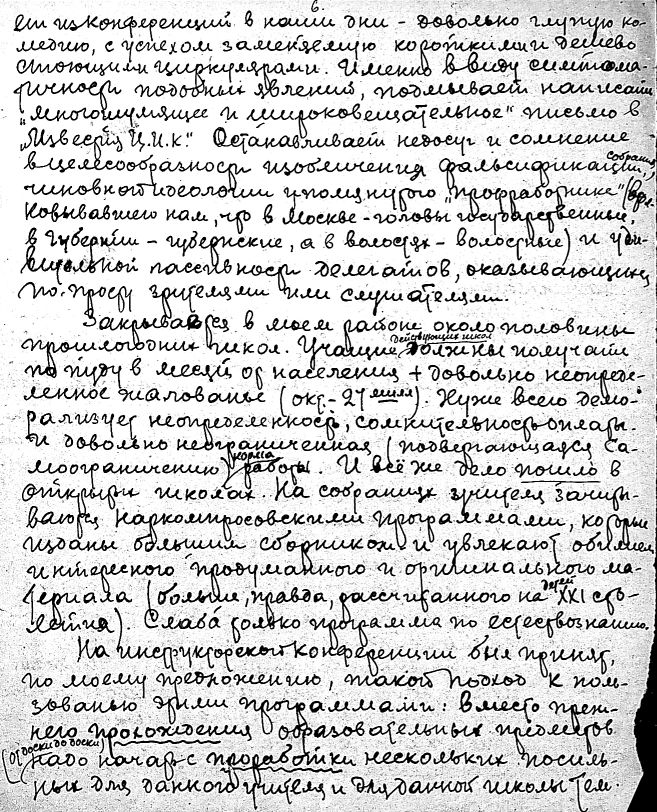 6.
ет из конференций в наши дни – довольно глупую ко-
медию, с успехом заменяемую короткими и дешево
стоющими циркулярами. Именно в виду симптома-
тичности подобных явлений, подмывает написать
„многошумящее и широковещательное" письмо в
„Известия Ц.И.К." Останавливает недосуг и сомнение
в целесообразности изобличения фальсификации собрания,
чиновной идеологии упомянутого „профработника" (
ковывавшего нам, что в Москве – головы государственные,
в губернии – губернские, а в волостях – волостные) и уди-
вительной пассивности делегатов, оказывающихся
по-просту зрителями или слушателями.
Закрывается в моем районе около половины
прошлогодних школ. Учащие действующих школ должны получать
по пуду в месяц от населения + довольно неопреде-
ленное жалованье (окт. – 27 милл.). Хуже всего демо-
рализует неопределенность, сомнительность оплаты
и довольно неограниченная (подвергающаяся са-
моограничению) норма работы. И всё же дело пошло в
открытых школах. На собраниях учителя зачиты-
ваются наркомпросовскими программами, которые
изданы большим сборником и увлекают обилием
интересного продуманного и оригинального ма-
териала (больше, правда, рассчитанного на детей XXI сто-
летия). Слаба только программа по естествознанию.
На инструкторской конференции был принят,
по моему предложению, такой подход к поль-
зованью этими программами: вместо преж-
него прохождения образовательных предметов
(от доски до доски) надо начать с проработки нескольких посиль-
ных для данного учителя и для данной школы тем.